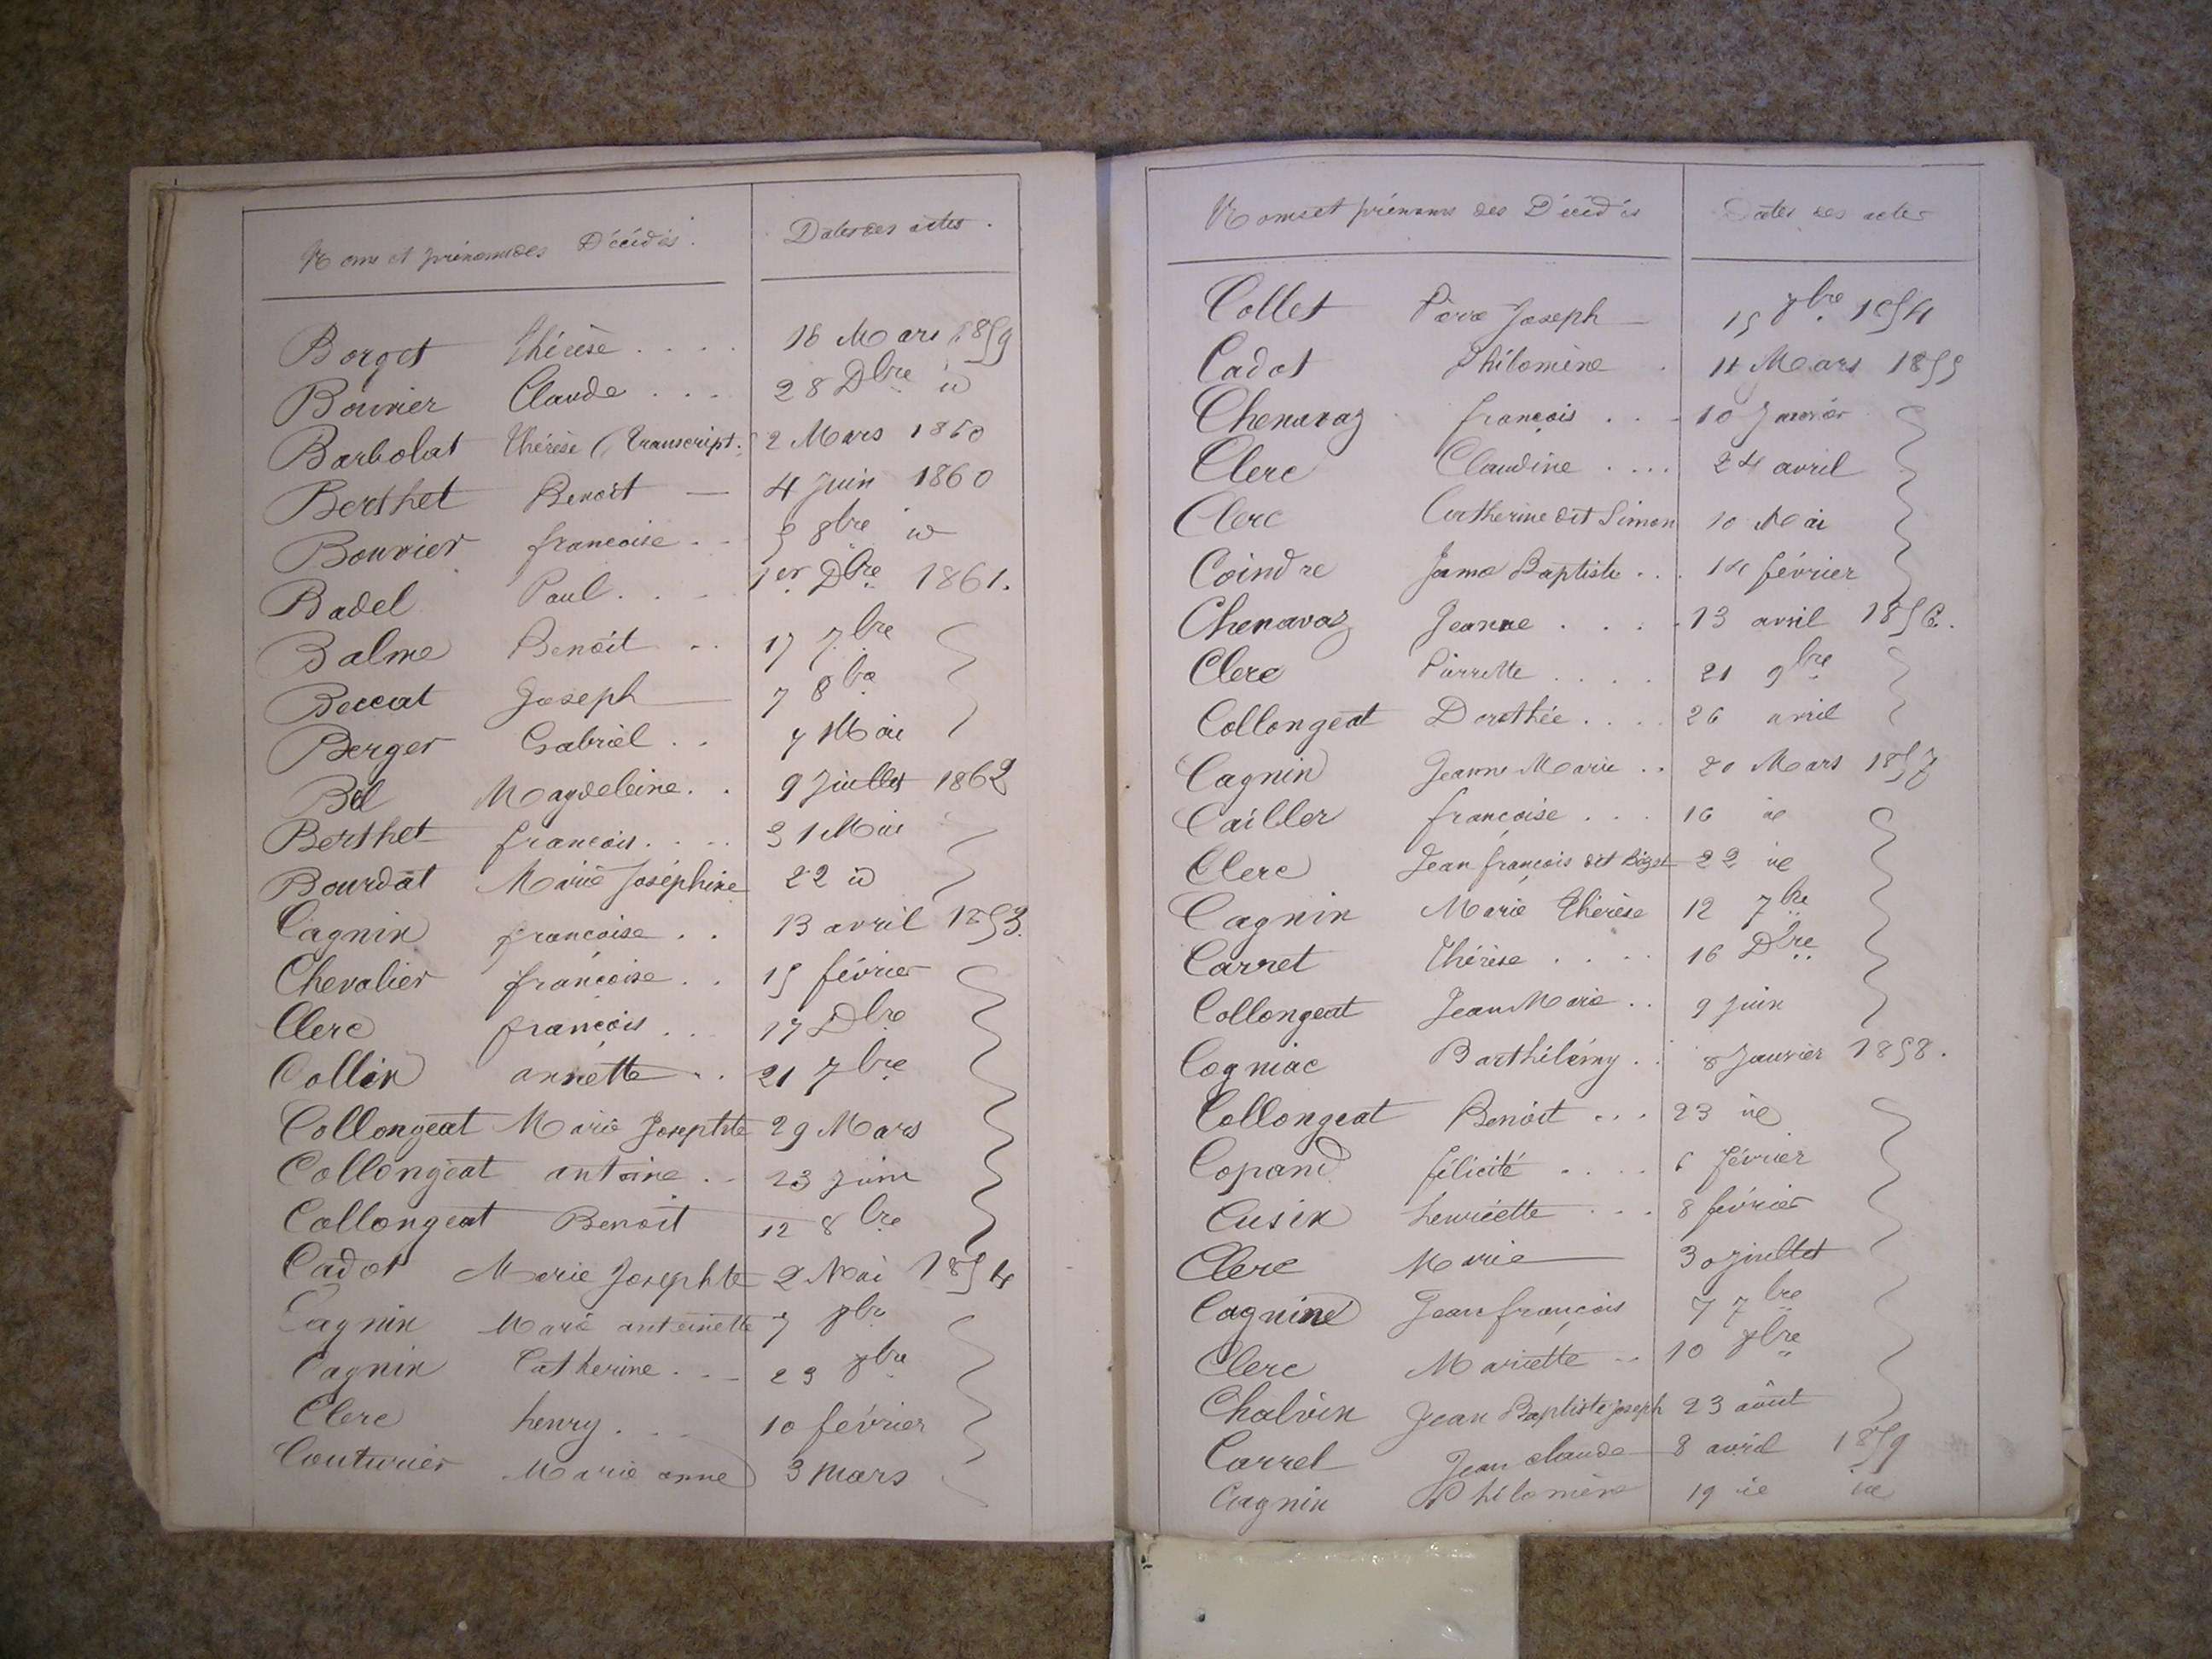 Noms et prénoms des Décédés. Dates des actes.
Borget Thérèse .... 16 Mars 1859
Bouvier Claude ... 28 Dbre id
Barbolat Thérèse (Transcript. 2 Mars 1860
Berthet Benoit — 4 Juin 1860
Bouvier francoise .. 9 8bre id
Badel Paul .... 1er Dbre 1861.
Balme Benoit .. 17 7bre
Beccat Joseph — 7 8bre
Berger Gabriel .. 7 Mai
Bel Magdeleine .. 9 Juillet 1862
Berthet francois .... 31 Mai
Bourdat Marie Joséphine 22 id
Cagnin françoise .. 13 avril 1853.
Chevalier françoise .. 15 février
Clerc françois ... 17 Dbre
Collin annette .. 21 7bre
Collongeat Marie Josephte 29 Mars
Collongeat antoine .. 23 Juin
Collongeat Benoit 12 8bre
Cadot Marie Josephte 2 Mai 1854
Cagnin Marie antoinette 7 9bre
Cagnin Catherine ... 23 9bre
Clerc henry ... 10 février
Couturier Marie anne 3 mars
Noms et prénoms des Décédés Dates des actes
Collet Pierre Joseph — 15 9bre 1854
Cadot Philomène . 11 Mars 1855
Chenavaz françois ... 10 Janvier
Clerc Claudine .... 24 avril
Clerc Catherine dit Simon 10 Mai
Coindre Jame Baptiste ... 14 février
Chenavaz Jeanne .... 13 avril 1856.
Clerc Pierrette .... 21 9bre
Collongeat Dorothée .... 26 avril
Cagnin Jeanne Marie .. 20 Mars 1857
Cailler francoise ... 16 id
Clerc Jean françois dit 22 id
Cagnin Marie Thérèse 12 7bre
Carret Thérèse .... 16 Dbre
Collongeat Jean Marie .. 9 Juin
Cogniac Barthélémy .. 8 Janvier 1858.
Collongeat Benoit ... 23 id
Copand félicité .... 6 février
Cusin henriette ... 8 février
Clerc Marie — 30 Juillet
Cagnine Jean françois 7 7bre
Clerc Mariette .. 10 9bre
Chalvin Jean Baptiste Joseph 23 août
Carrel Jean claude 8 avril 1859
Cagnin Philomène 19 id id